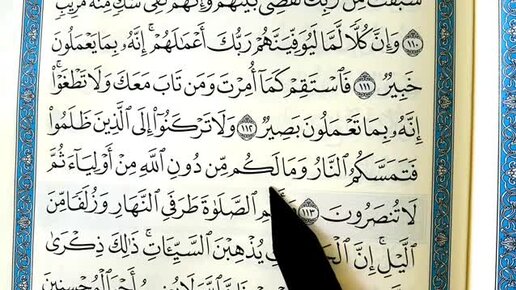 سَبَقَتْ مِن رَّبِّكَ لَقُضِيَ بَيْنَهُمْ وَإِنَّهُمْ لَفِي شَكٍّ مِّنْهُ مُرِيبٍ
۝١١٠ وَإِنَّ كُلًّا لَّمَّا لَيُوَفِّيَنَّهُمْ رَبُّكَ أَعْمَٰلَهُمْ ۚ إِنَّهُۥ بِمَا يَعْمَلُونَ
خَبِيرٌ ۝١١١ فَٱسْتَقِمْ كَمَآ أُمِرْتَ وَمَن تَابَ مَعَكَ وَلَا تَطْغَوْا۟ ۚ
إِنَّهُۥ بِمَا تَعْمَلُونَ بَصِيرٌ ۝١١٢ وَلَا تَرْكَنُوٓا۟ إِلَى ٱلَّذِينَ ظَلَمُوا۟
فَتَمَسَّكُمُ ٱلنَّارُ وَمَا لَكُم مِّن دُونِ ٱللَّهِ مِنْ أَوْلِيَآءَ ثُمَّ
لَا تُنصَرُونَ ۝١١٣ ٱلصَّلَوٰةَ طَرَفَىِ ٱلنَّهَارِ وَزُلَفًا مِّنَ
ٱلَّيْلِ ۚ إِنَّ يُذْهِبْنَ ٱلسَّيِّـَٔاتِ ۚ ذَٰلِكَ ذِكْرَىٰ
أَجْرَ ٱلْمُحْسِنِينَ